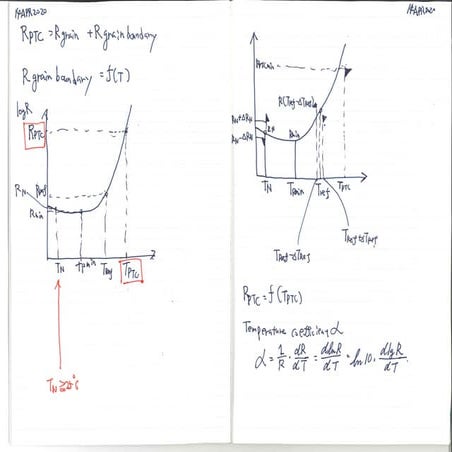 14APR2020
RPTC = Rgrain + Rgrain boundary
R grain boundary = f(T)
logR
RPTC
RN
Rref
Rmin
TN
Tref
TPTC
14APR2020
RPTCmin
R(Tref-ΔTref)
RN+ΔRN
RN-ΔRN
Rmin
TN
TRmin
Tref
TPTC
Tref+ΔTref
Tref-ΔTref
RPTC = f(TPTC)
Temperature coefficient α
α = 1/R · dR/dT = dlnR/dT = ln10 · dlgR/dT